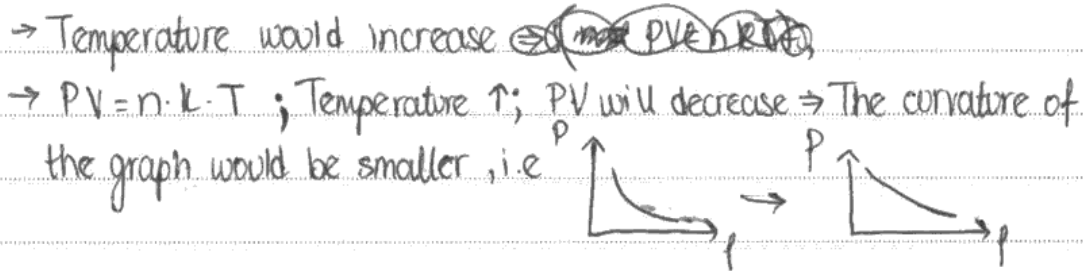 → Temperature would increase
→ PV = n·k·T ; Temperature ↑; PV will decrease ⇒ The curvature of
the graph would be smaller, i.e
P P
→
l l